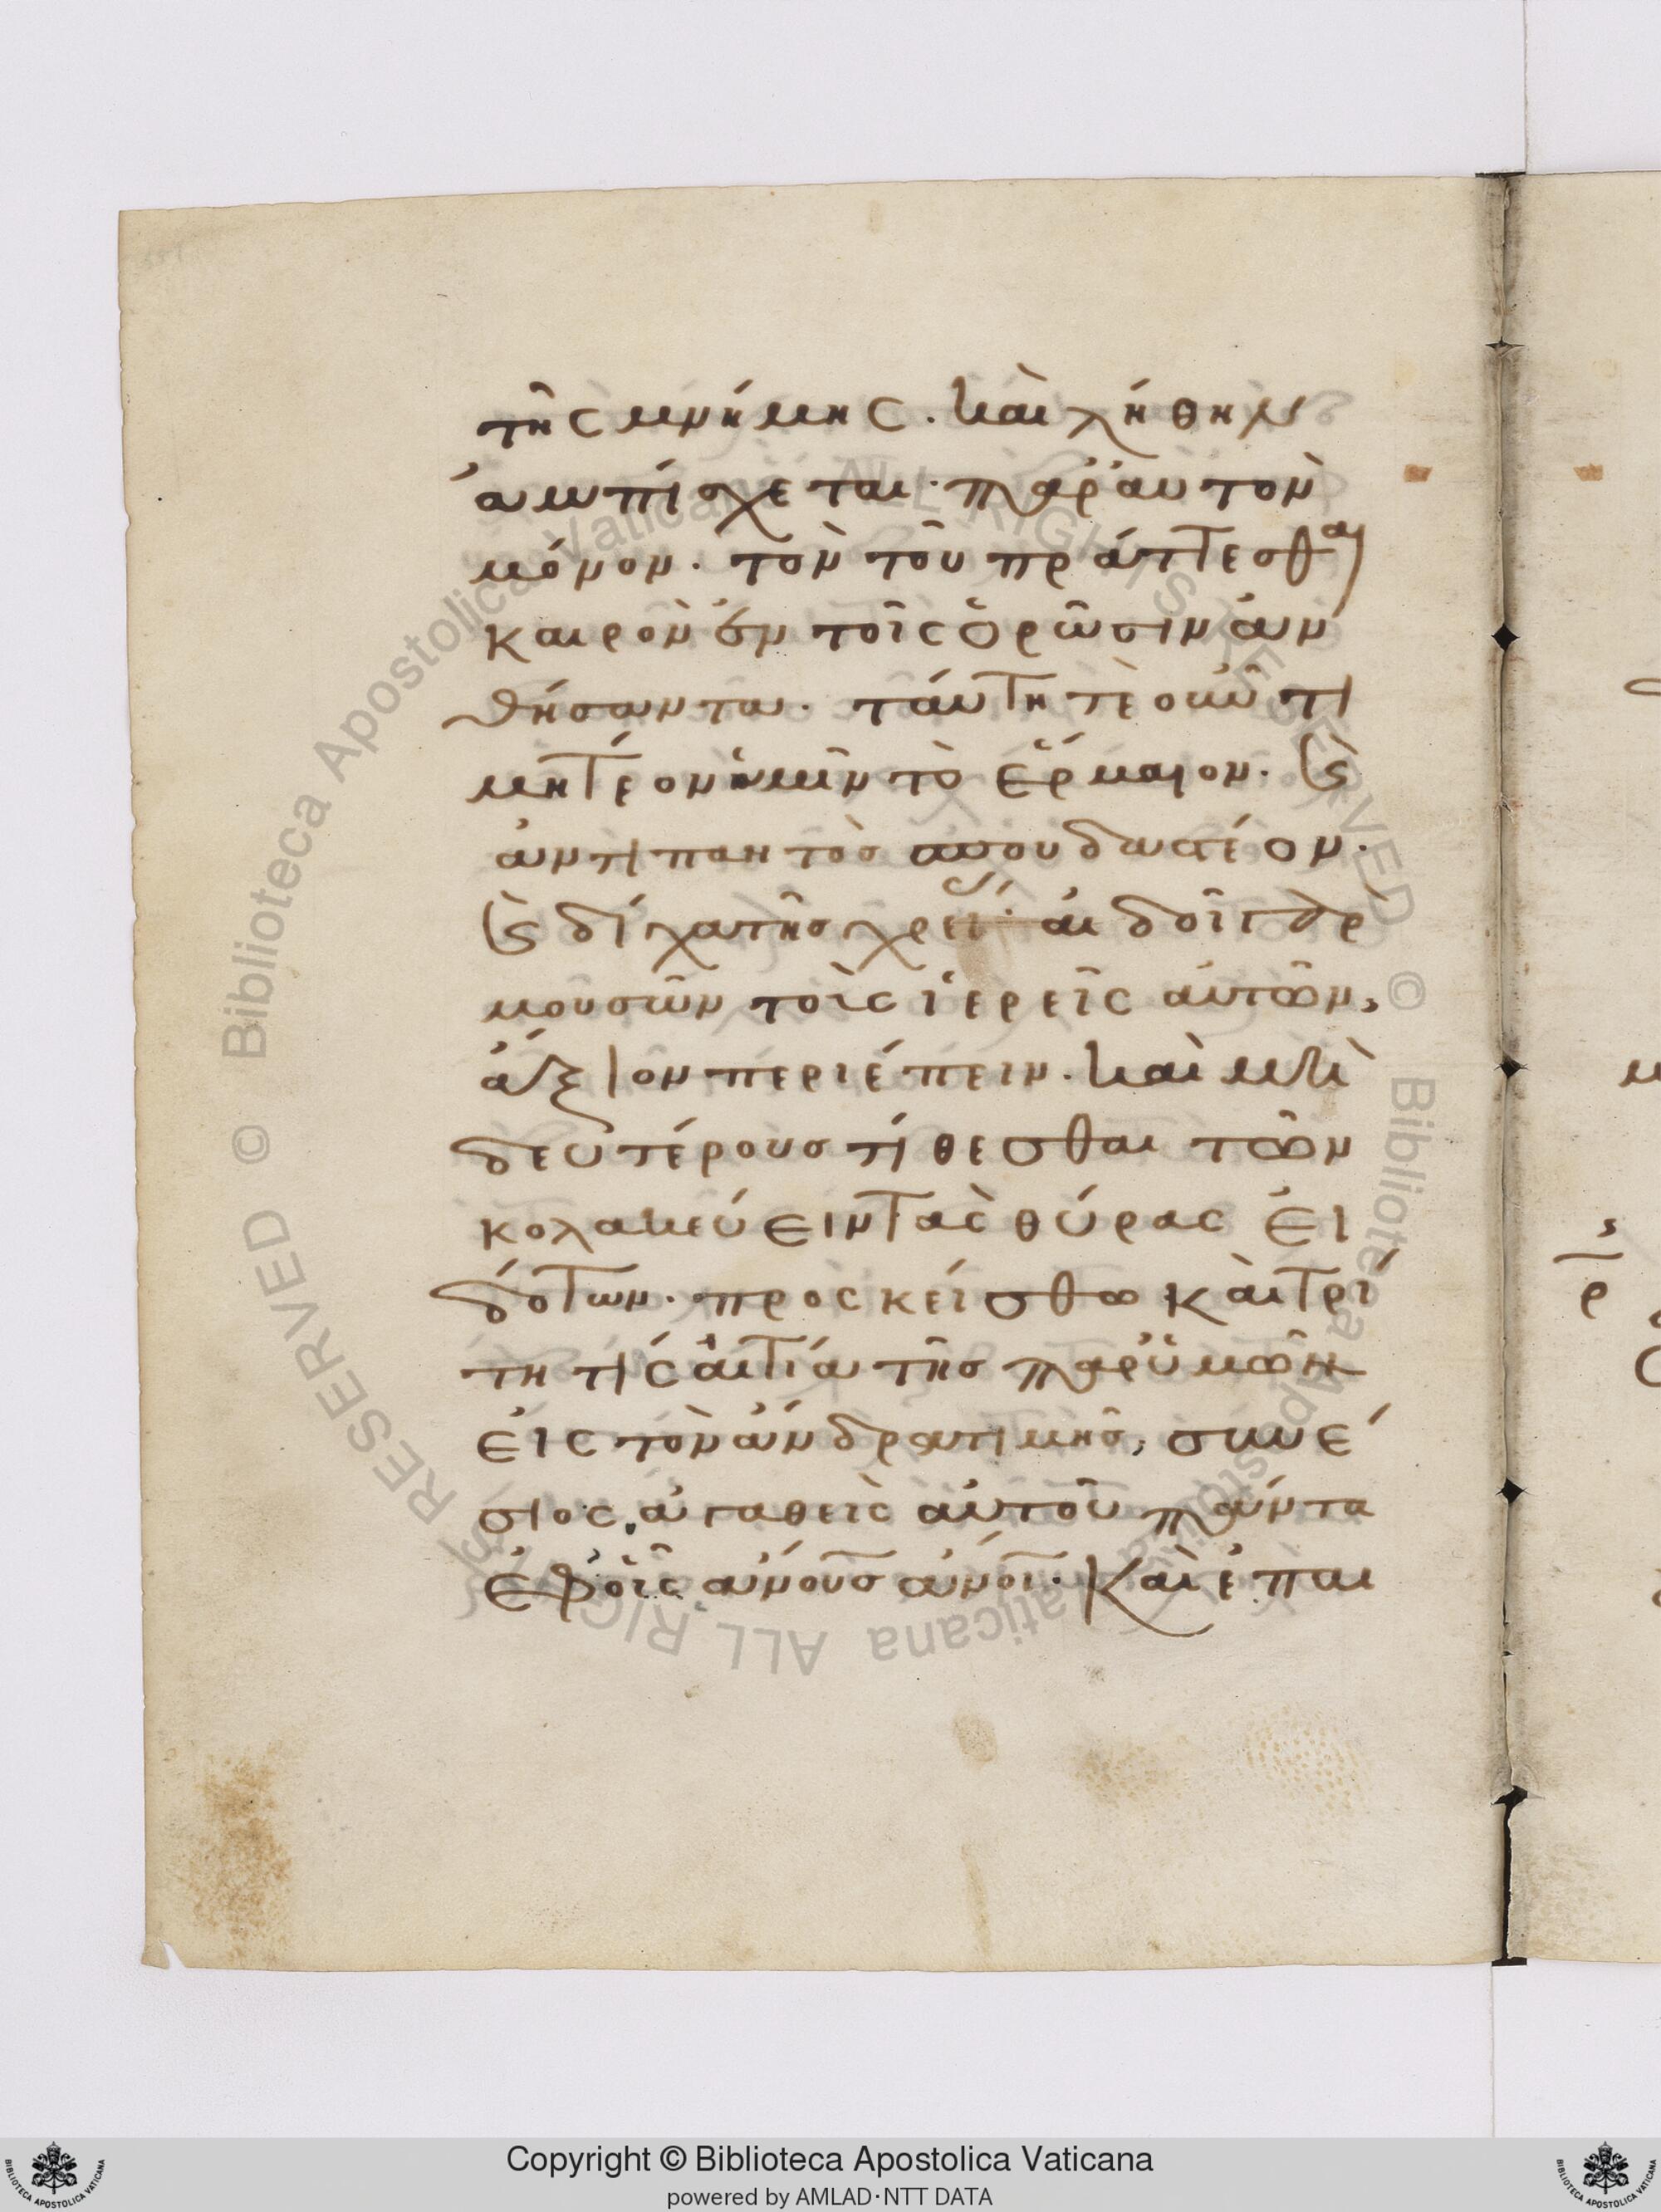 τῆς μνήμης. καὶ λήθην
ἀμπίσχεται. παρ' αὐτὸν
μόνον. τὸν τοῦ πράττεσθαι
καιρὸν ἐν τοῖς ὁρῶσιν ἀν
θήσαντα. ταύτῃ τὲ οὖν τι
μητέον ἡμῖν τὸ ἕρμαιον. καὶ
ἀντιπαντὸς σπουδαστέον.
καὶ δίχα τῆς αἰδοῖ γὰρ
μουσῶν τοὺς ἱερεῖς αὐτῶν,
ἄξιον περιέπειν. καὶ μὴ
δευτέρους τίθεσθαι τῶν
κολακεύειν τὰς θύρας εἰ
δότων. προσκείσθω καὶ τρί
τη τίς αἰτία τῆς παρ' ὑμῶν
εἰς τὸν ἄνδρα τιμῆς, συνέ
στιος ἀγαθεὶς αὐτοῦ πάντα
ἐφ' οἷς ἄνους ἄνοι. Καὶ ἐπαι
Copyright © Biblioteca Apostolica Vaticana
powered by AMLAD·NTT DATA